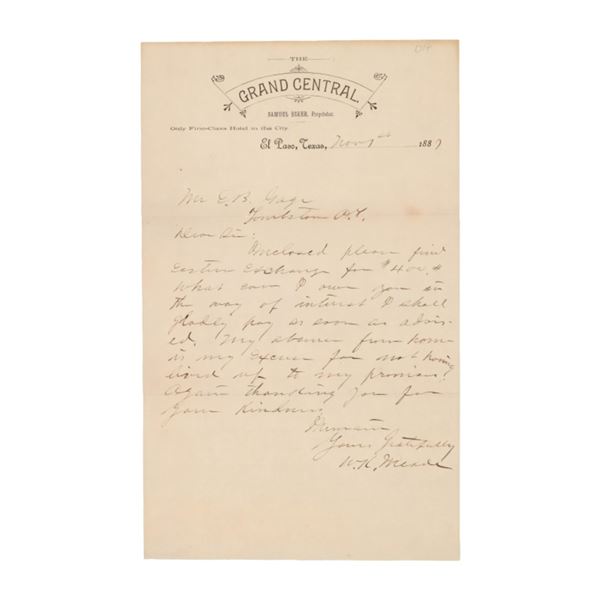 THE
GRAND CENTRAL.
SAMUEL ECKER, Proprietor.
Only First-Class Hotel in the City
El Paso, Texas, Nov 1st 1887
Mr E. B. Gage
Tombstone A.T.
Dear Sir:
Enclosed please find
Eastern Exchange for $400.
What ever I owe you in
the way of interest I shall
gladly pay as soon as advis-
ed. My absence from home
is my excuse for not having
lived up to my promises.
Again thanking you for
your kindness.
I remain
Yours Gratefully
W. K. Meade